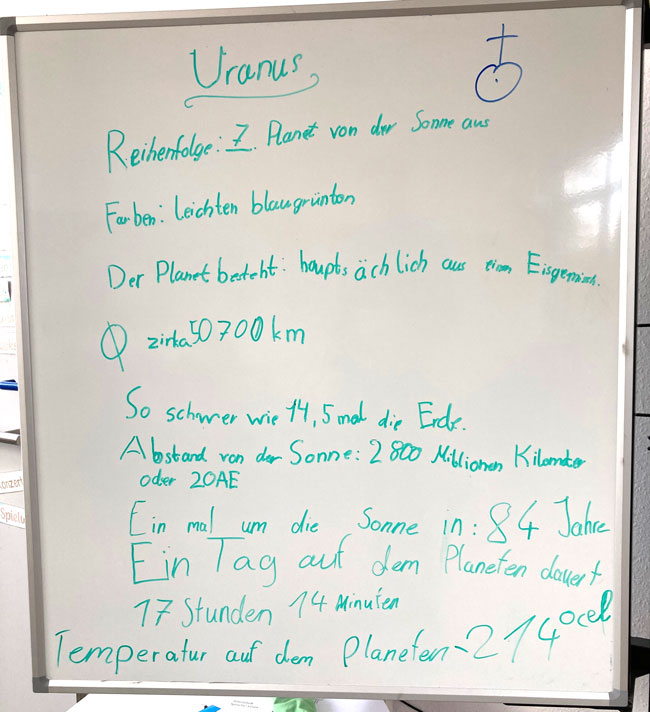 Uranus
Reihenfolge: 7. Planet von der Sonne aus
Farben: leichten blaugrünton
Der Planet besteht: hauptsächlich aus einem Eisgemisch.
Ø zirka 50700 km
So schwer wie 14,5 mal die Erde.
Abstand von der Sonne: 2800 Miblionen Kilometer
oder 20AE
Ein mal um die Sonne in: 84 Jahre
Ein Tag auf dem Planeten dauert
17 Stunden 14 Minuten
Temperatur auf dem Planeten -214°cel